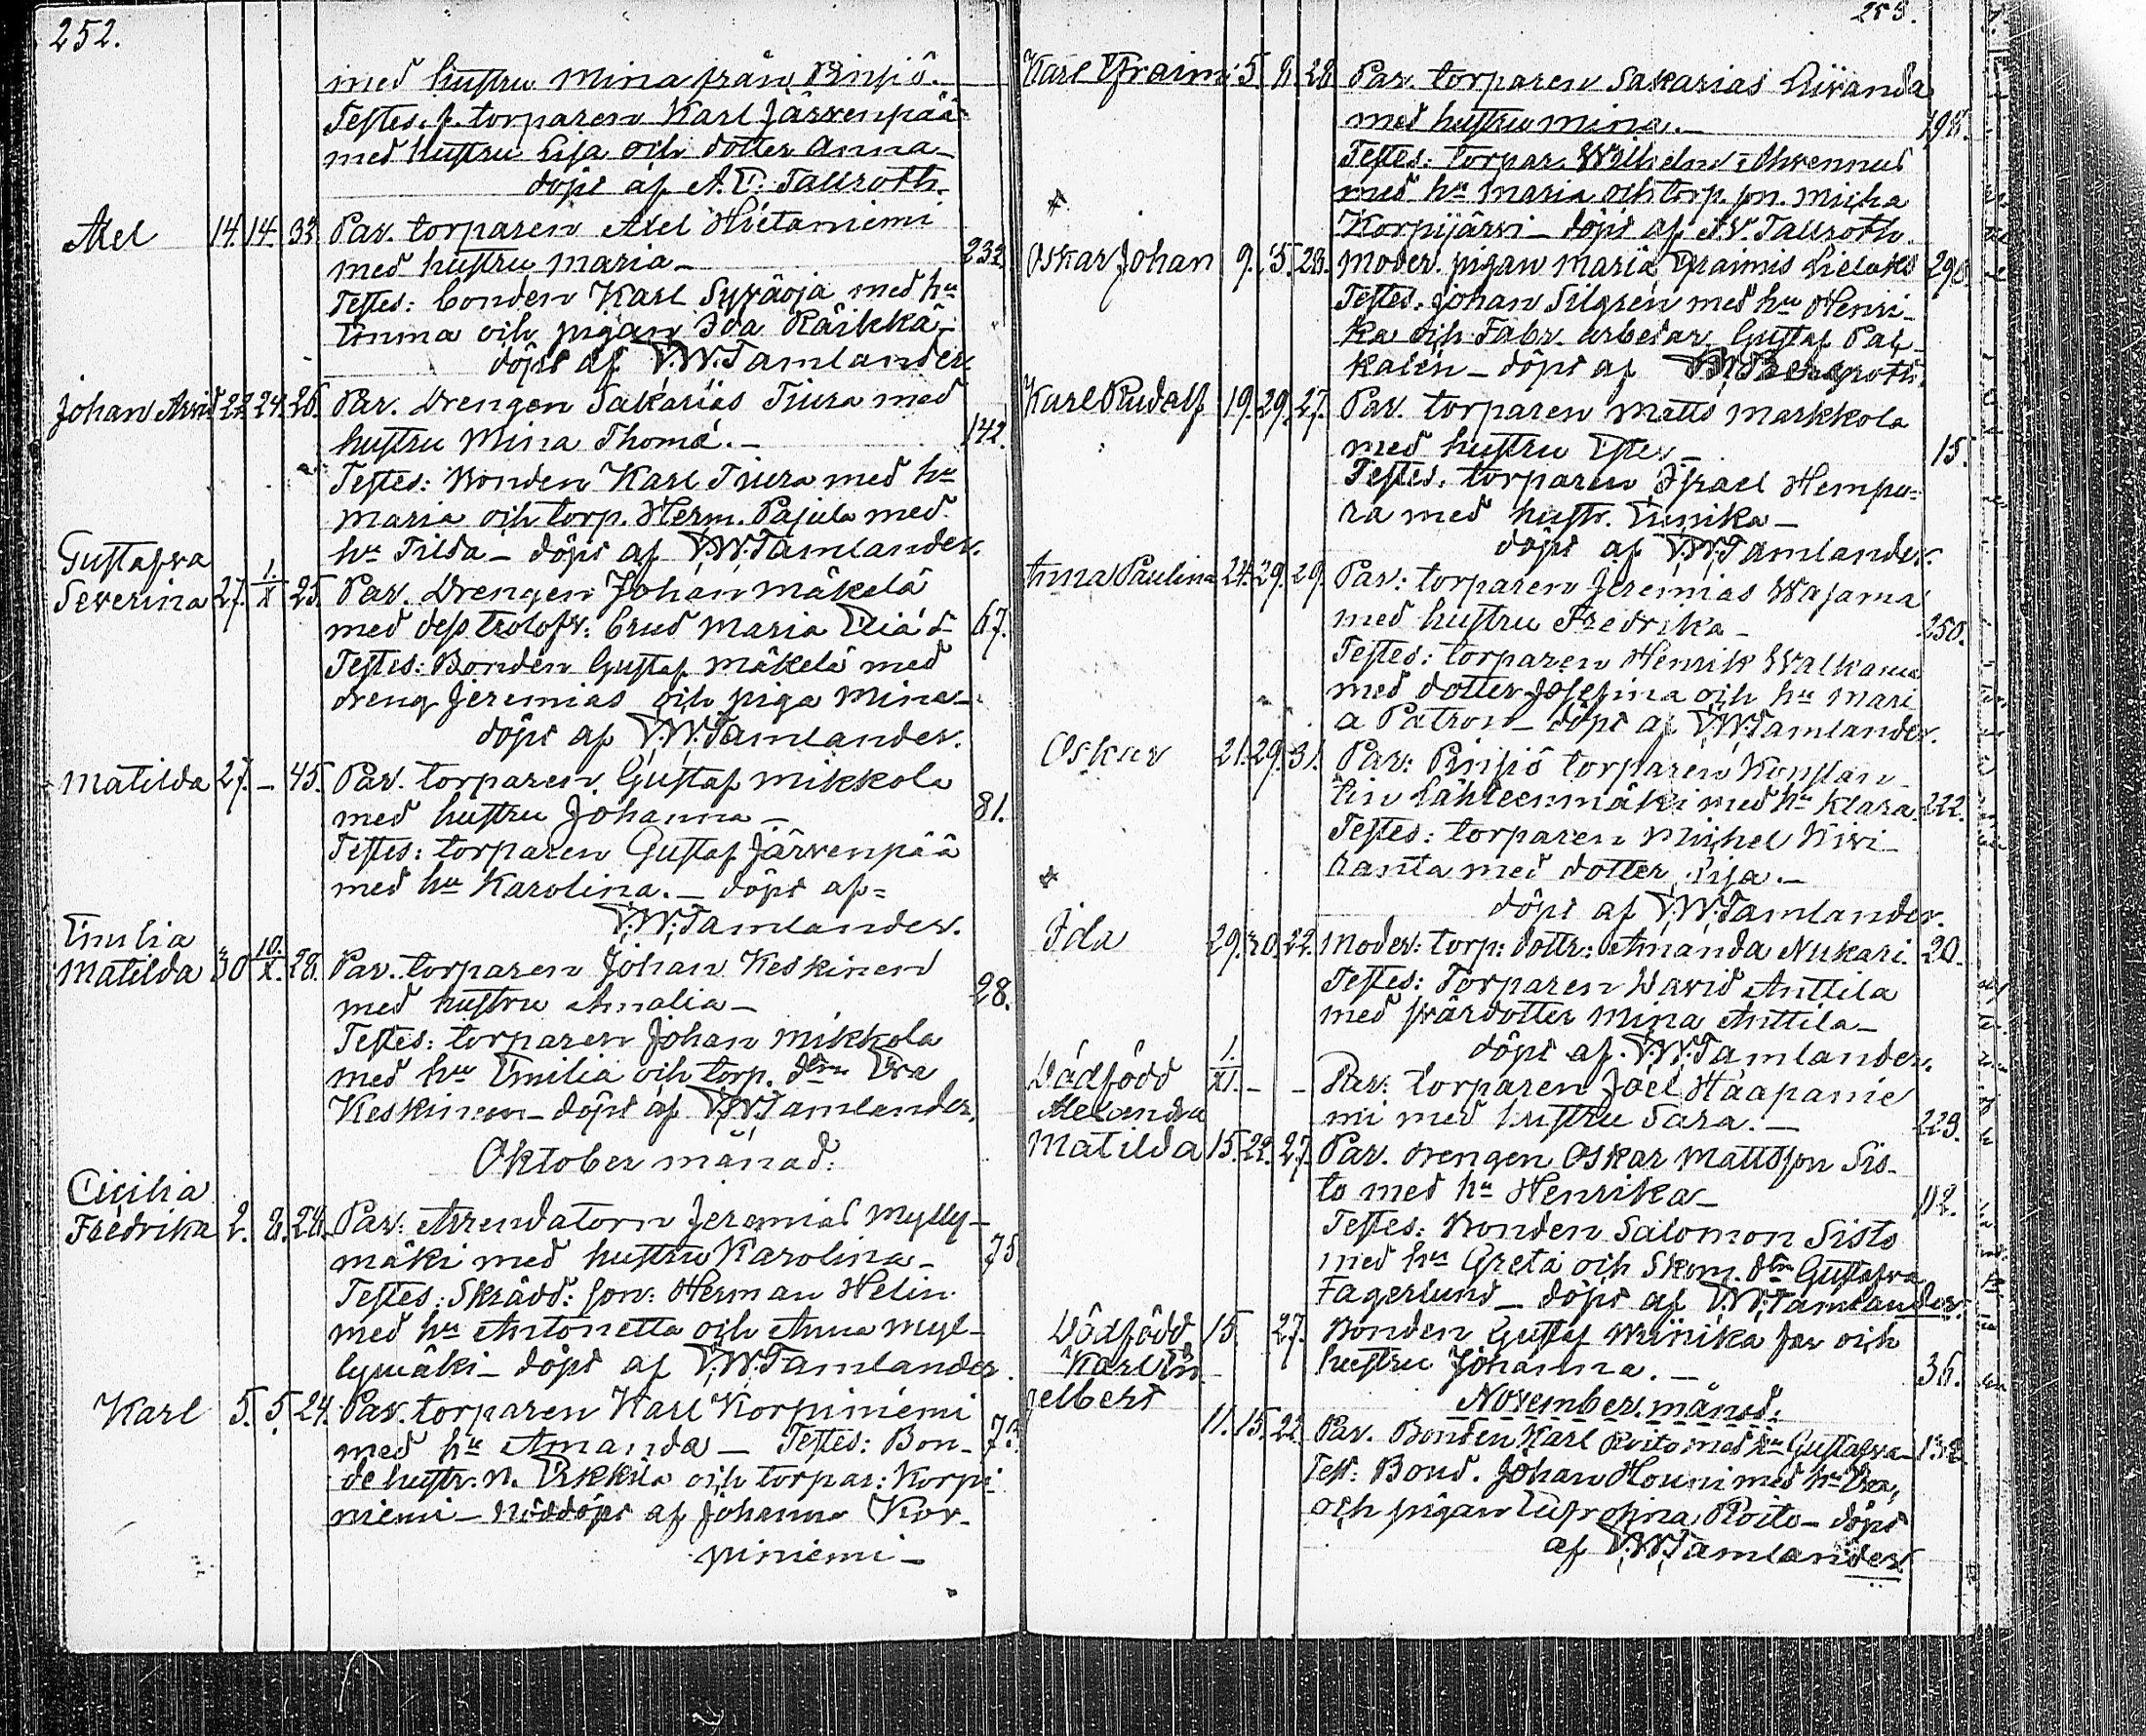 252.
med hustru Mina från Pinsiö.
Testes. f. torparen Karl Järvenpää
med hustru Lisa och dotter Anna
döpt af A. T. Tallroth.
Axel 14. 14. 33 Par. torparen Axel Hietaniemi
med hustru Maria — 232.
Testes: bonden Karl Syväoja med hu
Emma och pigan Ida Räikkä —
döpt af V.W. Tamlander
Johan Arvid 22 24. 26. Par. Drengen Sakarias Tiura med
hustru Mina Thomä. — 142.
Testes: Bonden Karl Tiura med hu
Maria och torp. Herm. Pajula med
hu Tilda — döpt af V.W. Tamlander.
Gustafva
Severina 27. 1./X 25. Par. Drengen Johan Mäkelä
med dess trolofv: brud Maria Eliæ d. 67.
Testes: Bonden Gustaf Mäkelä med
dreng Jeremias och piga Mina —
döpt af V.W. Tamlander.
Matilda 27. — 45. Par. torparen Gustaf Mikkola
med hustru Johanna — 81.
Testes: torparen Gustaf Järvenpää
med hu Karolina. — döpt af =
V.W. Tamlander.
Emilia
Matilda 30 10./X. 28. Par. torparen Johan Keskinen
med hustru Amalia — 28.
Testes: torparen Johan Mikkola
med hu Emilia och torp. dtrn Eva
Keskinen — döpt af V.W. Tamlander.
Oktober månad.
Cicilia
Fredrika 2. 8. 28. Par. Arrendatorn Jeremias Mylly-
mäki med hustru Karolina — 75
Testes: Skrädd: son: Herman Helin
med hu Antonetta och Anna Myl-
lymäki — döpt af V.W. Tamlander.
Karl 5. 5. 24. Par. torparen Karl Korpiniemi
med hu Amanda — Testes: Bon- 73.
de hustr. M. Erkkilä och torpar: Korpi
niemi — Nöddöpt af Johanna Kor-
piniemi —
253.
Karl Efraim 5. 8. 28 Par. torparen Sakarias Liiranda
med hustru Mina. — 198.
Testes: torpar. Wilhelm Ahvennus
med hu Maria och torp. son. Micha
Korpijärvi — döpt af A.T. Tallroth.
Oskar Johan 9. 15. 28. Moder. pigan Maria Efraims Lielaks 290
Testes. Johan Silgren med hu Henri-
ka och Fabr. arbetar. Gustaf Pal-
kalen — döpt af
Karl Rudolf 19. 29. 27. Par. torparen Matts Markkola
med hustru Ester — 15.
Testes. torparen Israel Hempu=
ra med hustr. Eunika —
döpt af V.W. Tamlander.
Anna Paulina 24. 29. 29. Par: torparen Jeremias Wajama
med hustru Fredrika — 250.
Testes: torparen Henrik Walkama
med dotter Josefina och hu Mari
a Patron — döpt af V.W. Tamlander.
Oskar 21. 29. 31. Par: Pinsiö torparen Konstan
tin Lähteenmäki med hu Klara 222.
Testes: torparen Michel Kivi-
ranta med dotter Lisa. —
döpt af V.W. Tamlander.
Ida 29. 30. 22. Moder: torp: dottr: Amanda Nukari. 20.
Testes: Torparen David Anttila
med svärdotter Mina Anttila —
döpt af V.W. Tamlander.
Dödfödd 1./XI. — — Par: torparen Joel Haapanie
mi med hustru Sara. — 229.
Alexandra
Matilda 15. 22. 27. Par. drengen Oskar Mattsson Sis-
to med hu Henrika — 112.
Testes: Bonden Salomon Sisto
med hu Greta och Skom. dtrn Gustafva
Fagerlund — döpt af V.W. Tamlander.
Dödfödd 15. 27. Bonden Gustaf Wiinikka far och
hustru Johanna. — 36.
November månad:
Karl En
gelbert 11. 15. 22. Par. Bonden Karl Roito med hu Gustafva — 132
Test: Bond. Johan Houni med hu Eva,
och pigan Eufrosina Roito — döpt
af V.W. Tamlander